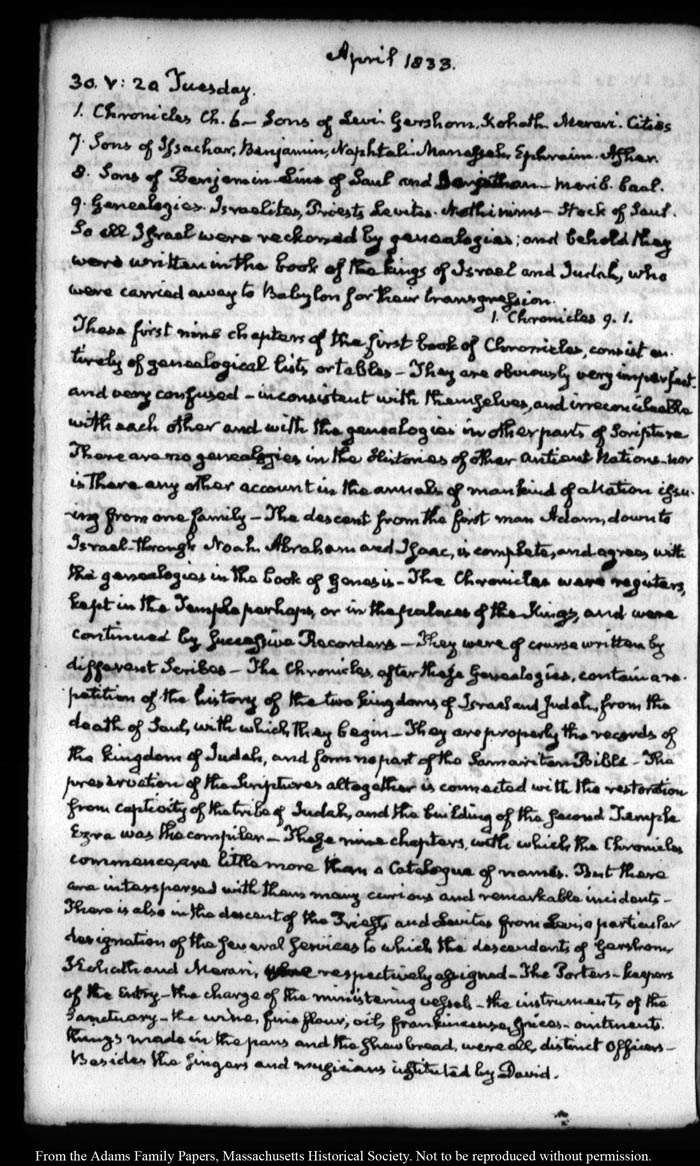 April 1833.
30. V: 20 Tuesday.
1. Chronicles Ch. 6 – Sons of Levi Gershom, Kohath Merari. Cities
7. Sons of Issachar, Benjamin, Naphtali Manasseh, Ephraim. Asher.
8. Sons of Benjamin Line of Saul and Jonathan – Merib. baal.
9. Genealogies. Israelites, Priests Levites. Nethinims – Stock of Saul.
So all Israel were reckoned by genealogies; and behold they
were written in the book of the kings of Israel and Judah, who
were carried away to Babylon for their transgression.
1. Chronicles 9. 1.
These first nine chapters of the first book of Chronicles, consist en-
tirely of genealogical lists or tables – They are obviously very imperfect
and very confused – inconsistent with themselves, and irreconcileable
with each other and with the genealogies in other parts of Scripture
There are no genealogies in the Histories of other Antient Nations – nor
is there any other account in the annals of mankind of a Nation issu-
ing from one family – The descent from the first man Adam, down to
Israel through Noah, Abraham and Isaac, is complete, and agrees with
the genealogies in the book of Genesis – The Chronicles were registers,
kept in the Temple perhaps, or in the palaces of the Kings, and were
continued by successive Recorders – They were of course written by
different Scribes – The Chronicles, after these Genealogies, contain a re-
petition of the history of the two kingdoms of Israel and Judah, from the
death of Saul, with which they begin – They are properly the records of
the kingdom of Judah, and form no part of the Samaritan Bible – The
preservation of the Scriptures altogether is connected with the restoration
from captivity of the tribe of Judah, and the building of the second Temple
Ezra was the compiler – These nine chapters, with which the Chronicles
commence, are little more than a Catalogue of names. But there
are interspersed with them many curious and remarkable incidents –
There is also in the descent of the Priests and Levites from Levi, a particular
designation of the several services to which the descendants of Gershom,
Kohath and Merari, were respectively assigned – The Porters – keepers
of the Entry – the charge of the ministering vessels – the instruments of the
Sanctuary – the wine, fine flour, oil, frankincense, spices – ointments.
things made in the pans and the shew bread, were all distinct Officers –
Besides the singers and musicians instituted by David.
From the Adams Family Papers, Massachusetts Historical Society. Not to be reproduced without permission.